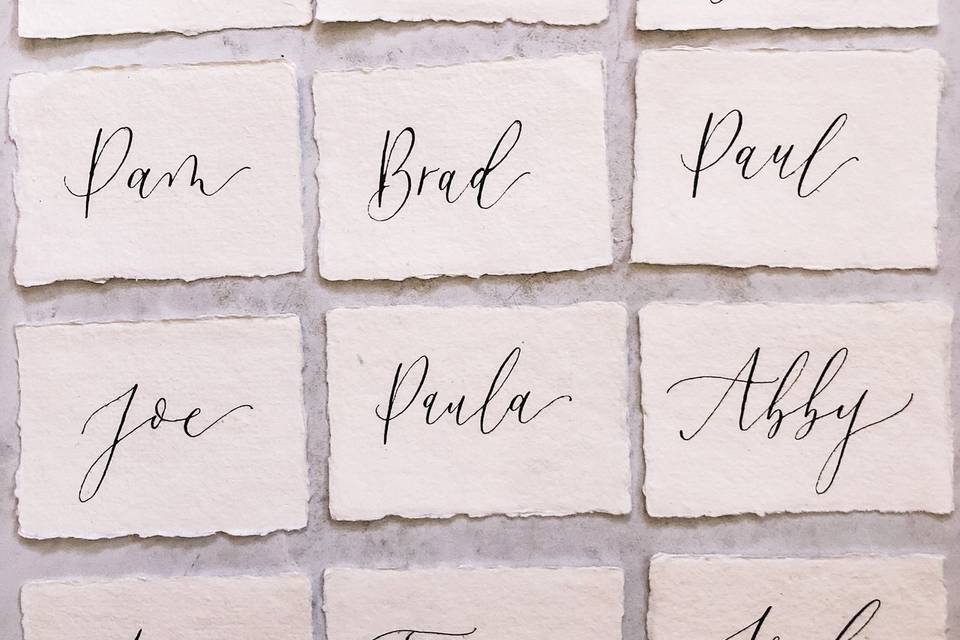 Pam
Brad
Paul
Joe
Paula
Abby